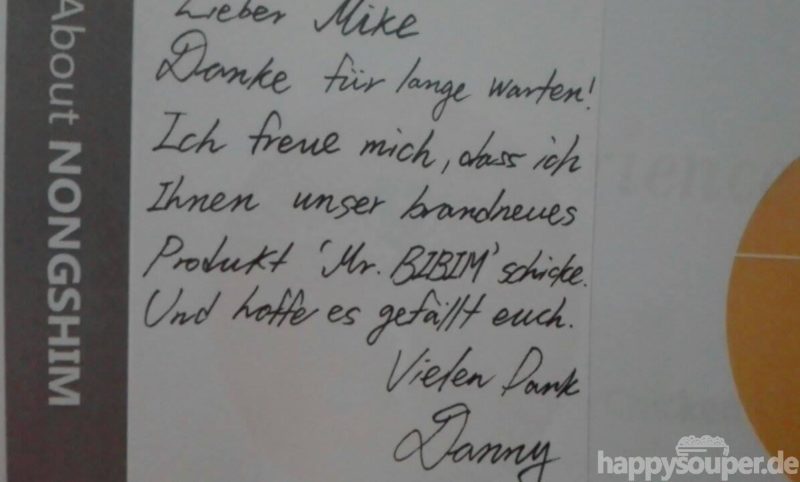 About NONGSHIM
Lieber Mike
Danke für lange warten!
Ich freue mich, dass ich
Ihnen unser brandneues
Produkt 'Mr. BIBIM' schicke.
Und hoffe es gefällt euch.
Vielen Dank
Danny
happysouper.de